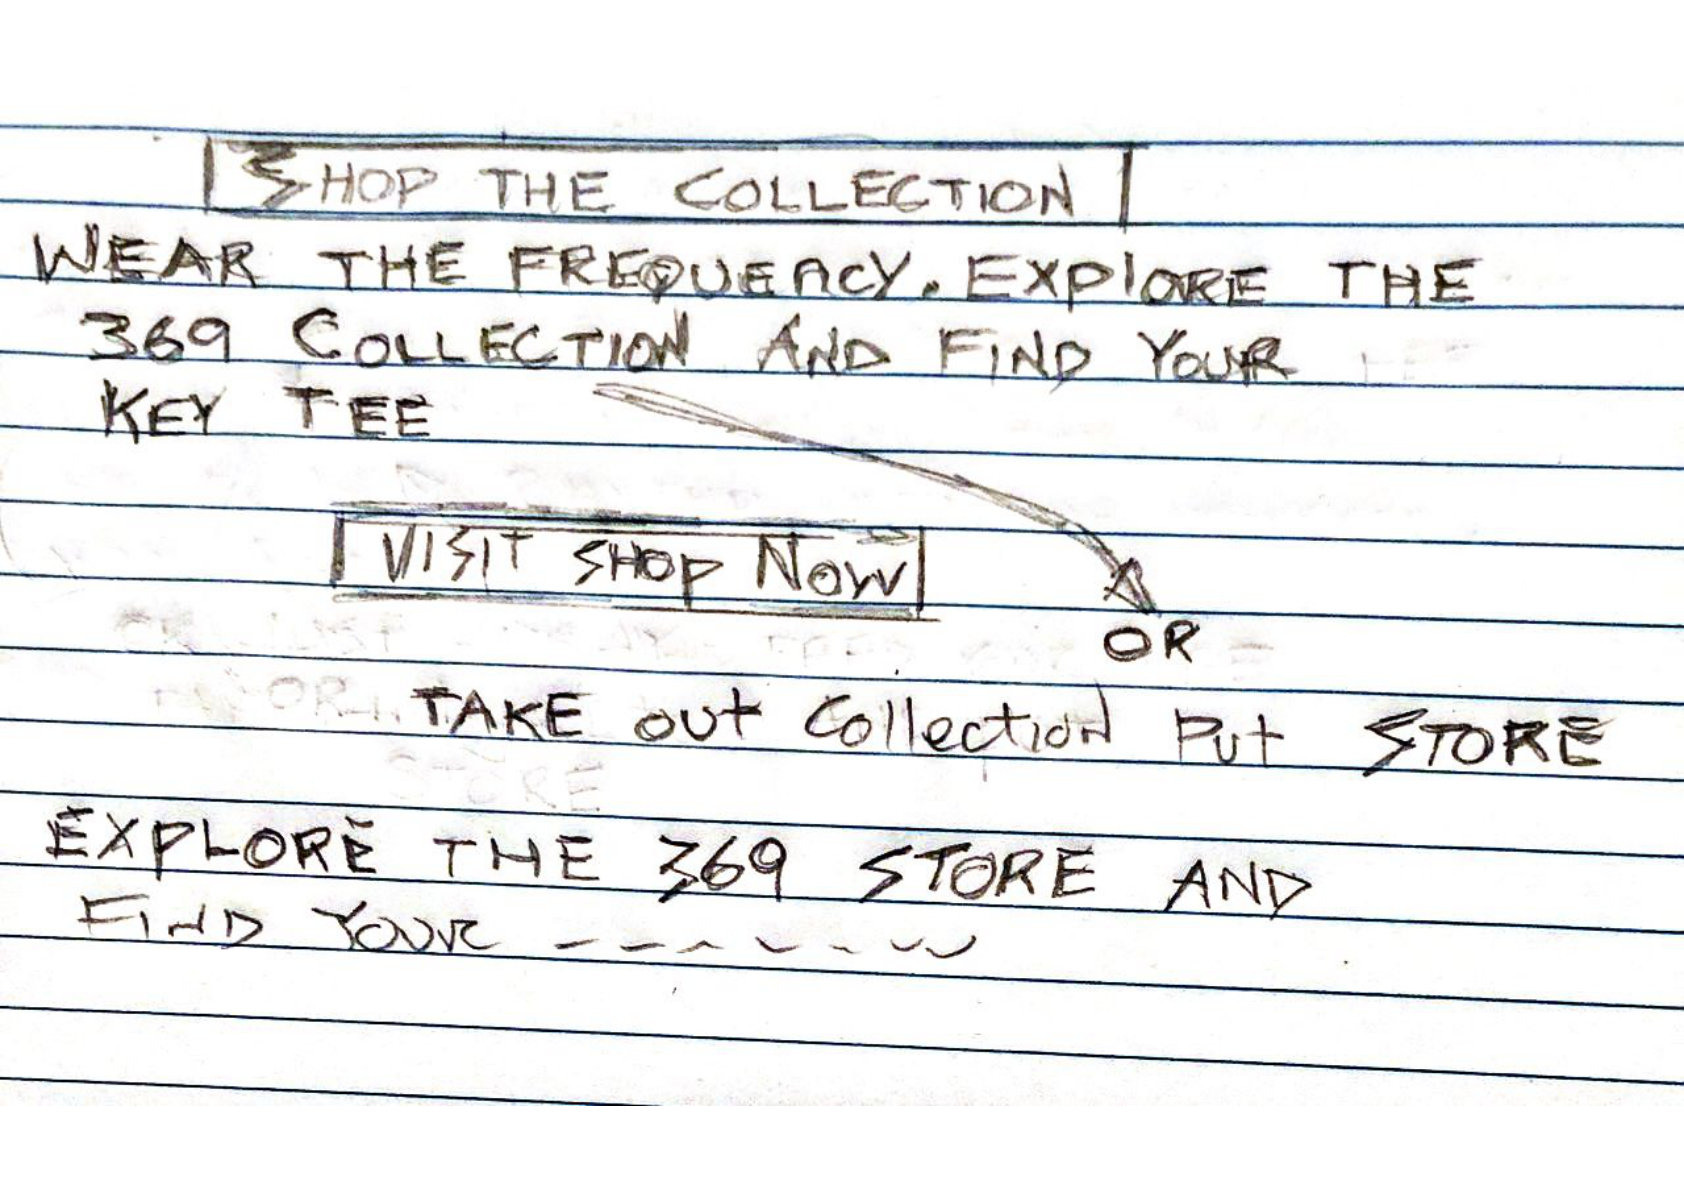 SHOP THE COLLECTION
WEAR THE FREQUENCY. EXPLORE THE
369 COLLECTION AND FIND YOUR
KEY TEE
VISIT SHOP NOW
OR
TAKE OUT Collection PUT STORE
EXPLORE THE 369 STORE AND
FIND YOUR -------